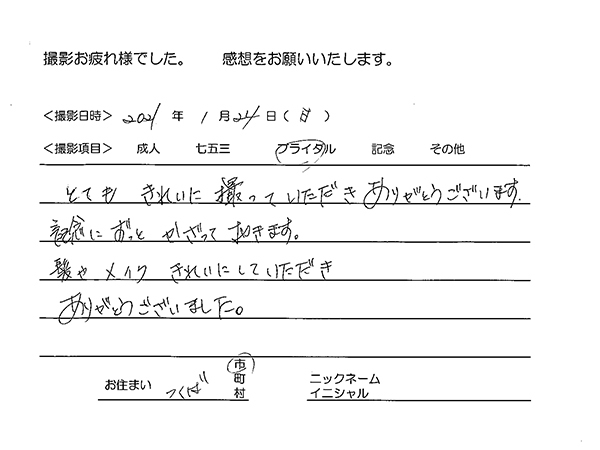 撮影お疲れ様でした。 感想をお願いいたします。
<撮影日時> 2021 年 1 月 24 日 ( 日 )
<撮影項目> 成人 七五三 ブライダル 記念 その他
とても きれいに 撮っていただき ありがとうございます.
記念に ずっと かざって おきます。
髪や メイク きれいにしていただき
ありがとうございました。
お住まい つくば 市 町 村
ニックネーム
イニシャル